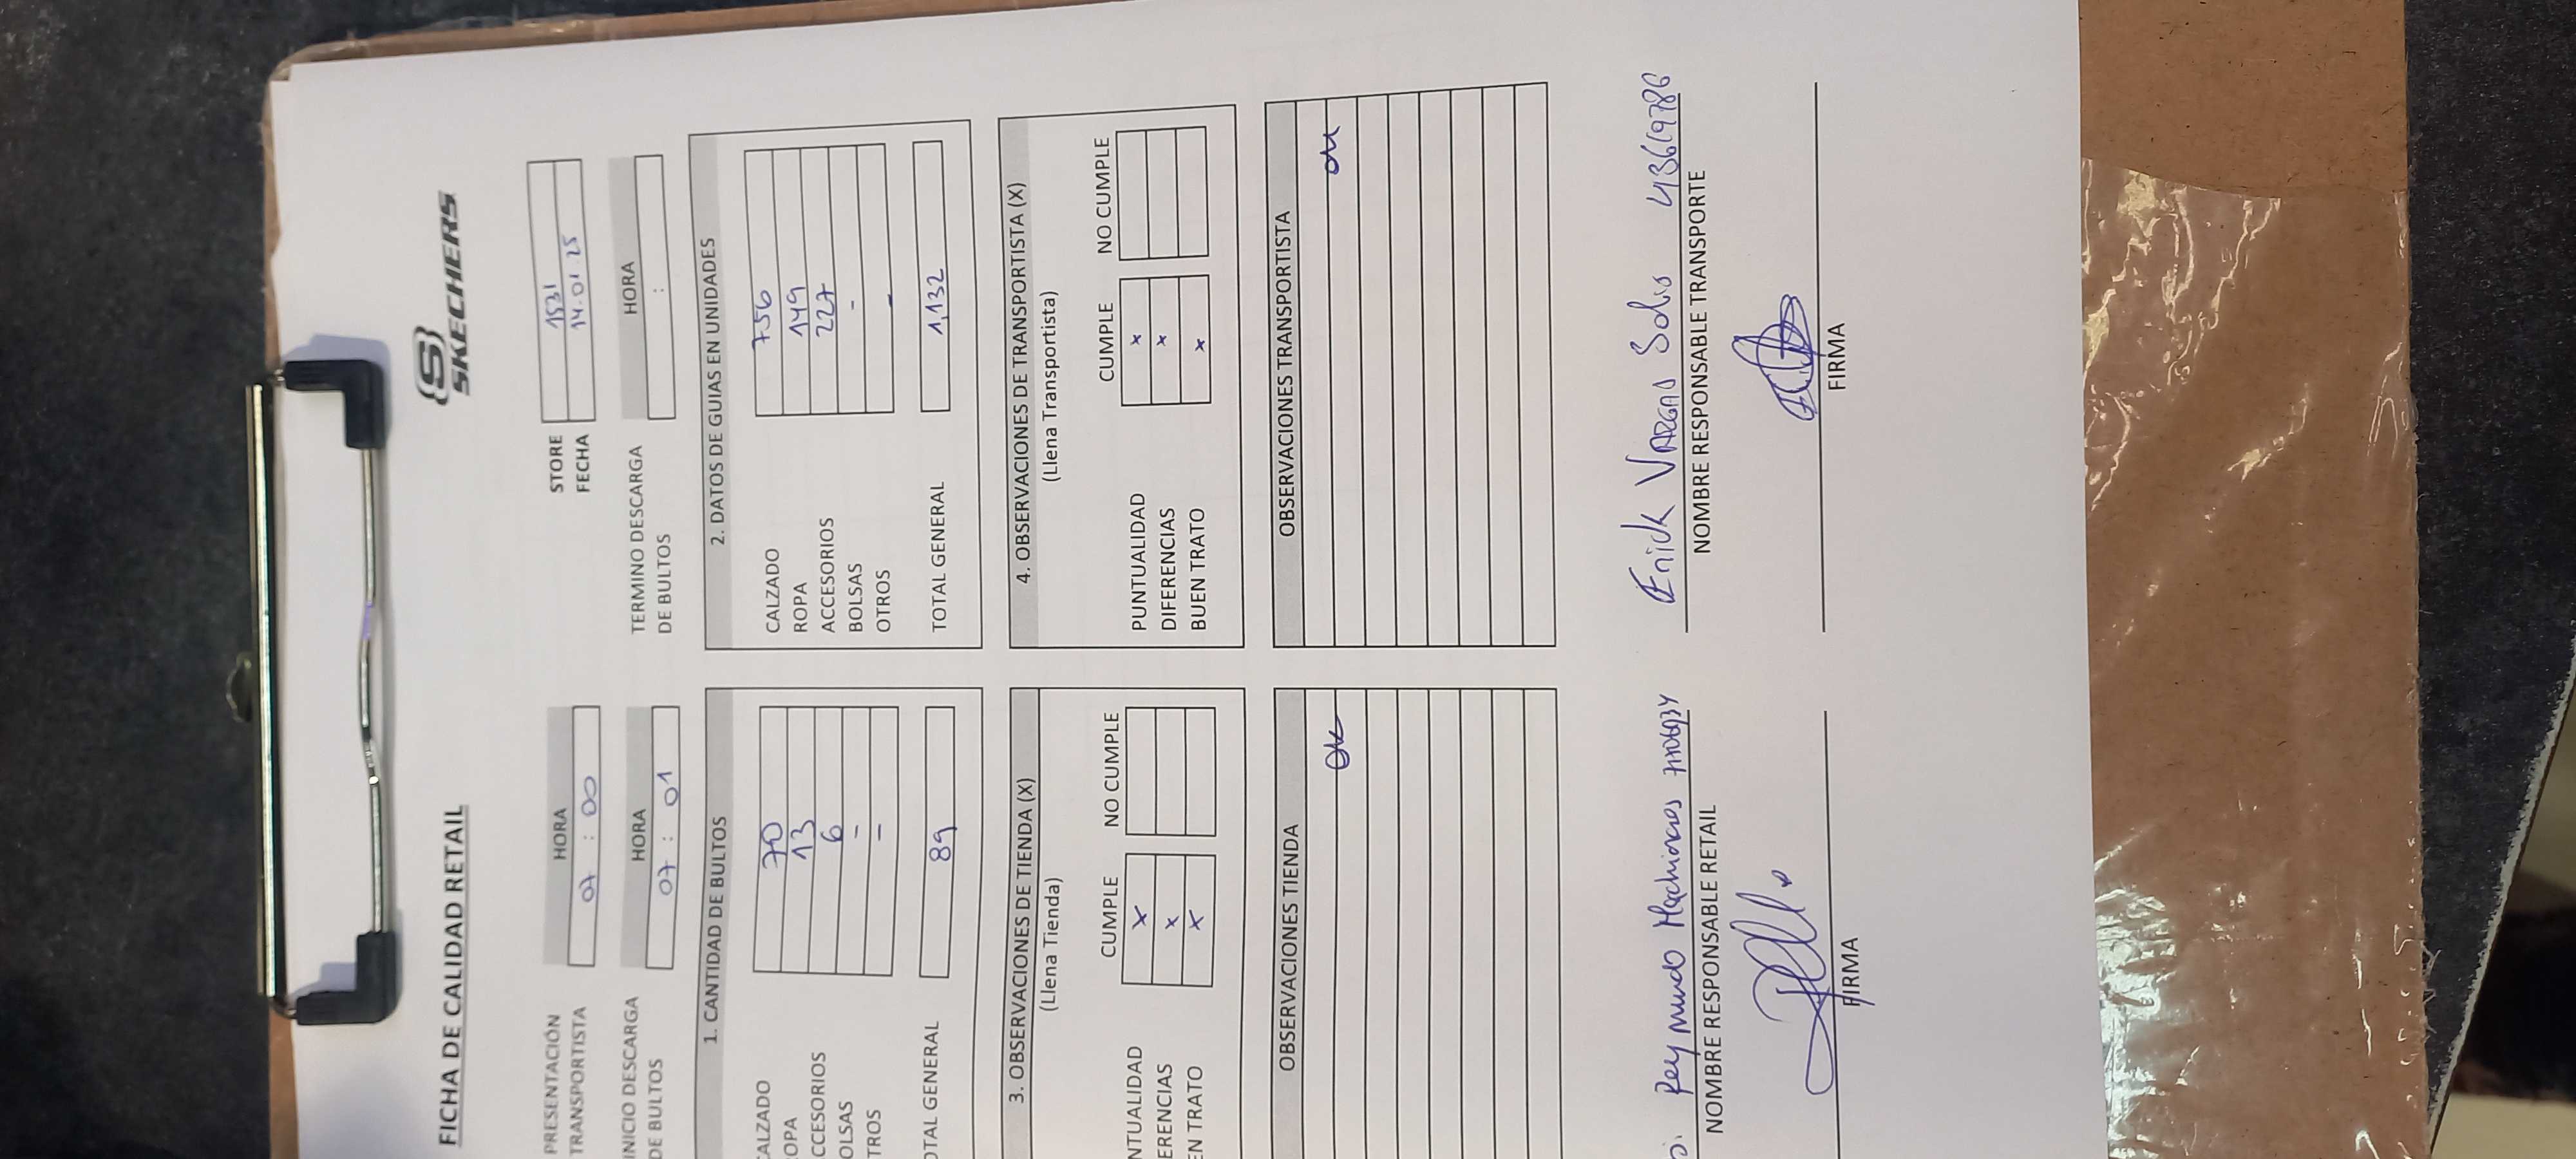 FICHA DE CALIDAD RETAIL
SKECHERS
STORE 1531
FECHA 14.01.25
PRESENTACIÓN TRANSPORTISTA
HORA
07 : 00
INICIO DESCARGA DE BULTOS
HORA
07 : 01
TERMINO DESCARGA DE BULTOS
HORA
:
1. CANTIDAD DE BULTOS
ALZADO 70
OPA 13
CCESORIOS 6
OLSAS -
TROS -
OTAL GENERAL 89
2. DATOS DE GUIAS EN UNIDADES
CALZADO 756
ROPA 149
ACCESORIOS 227
BOLSAS -
OTROS -
TOTAL GENERAL 1,132
3. OBSERVACIONES DE TIENDA (X)
(Llena Tienda)
CUMPLE NO CUMPLE
NTUALIDAD x
ERENCIAS x
EN TRATO x
4. OBSERVACIONES DE TRANSPORTISTA (X)
(Llena Transportista)
CUMPLE NO CUMPLE
PUNTUALIDAD x
DIFERENCIAS x
BUEN TRATO x
OBSERVACIONES TIENDA
Ok
OBSERVACIONES TRANSPORTISTA
Reymundo
NOMBRE RESPONSABLE RETAIL
FIRMA
Erick VARGAS Solis 43619786
NOMBRE RESPONSABLE TRANSPORTE
FIRMA